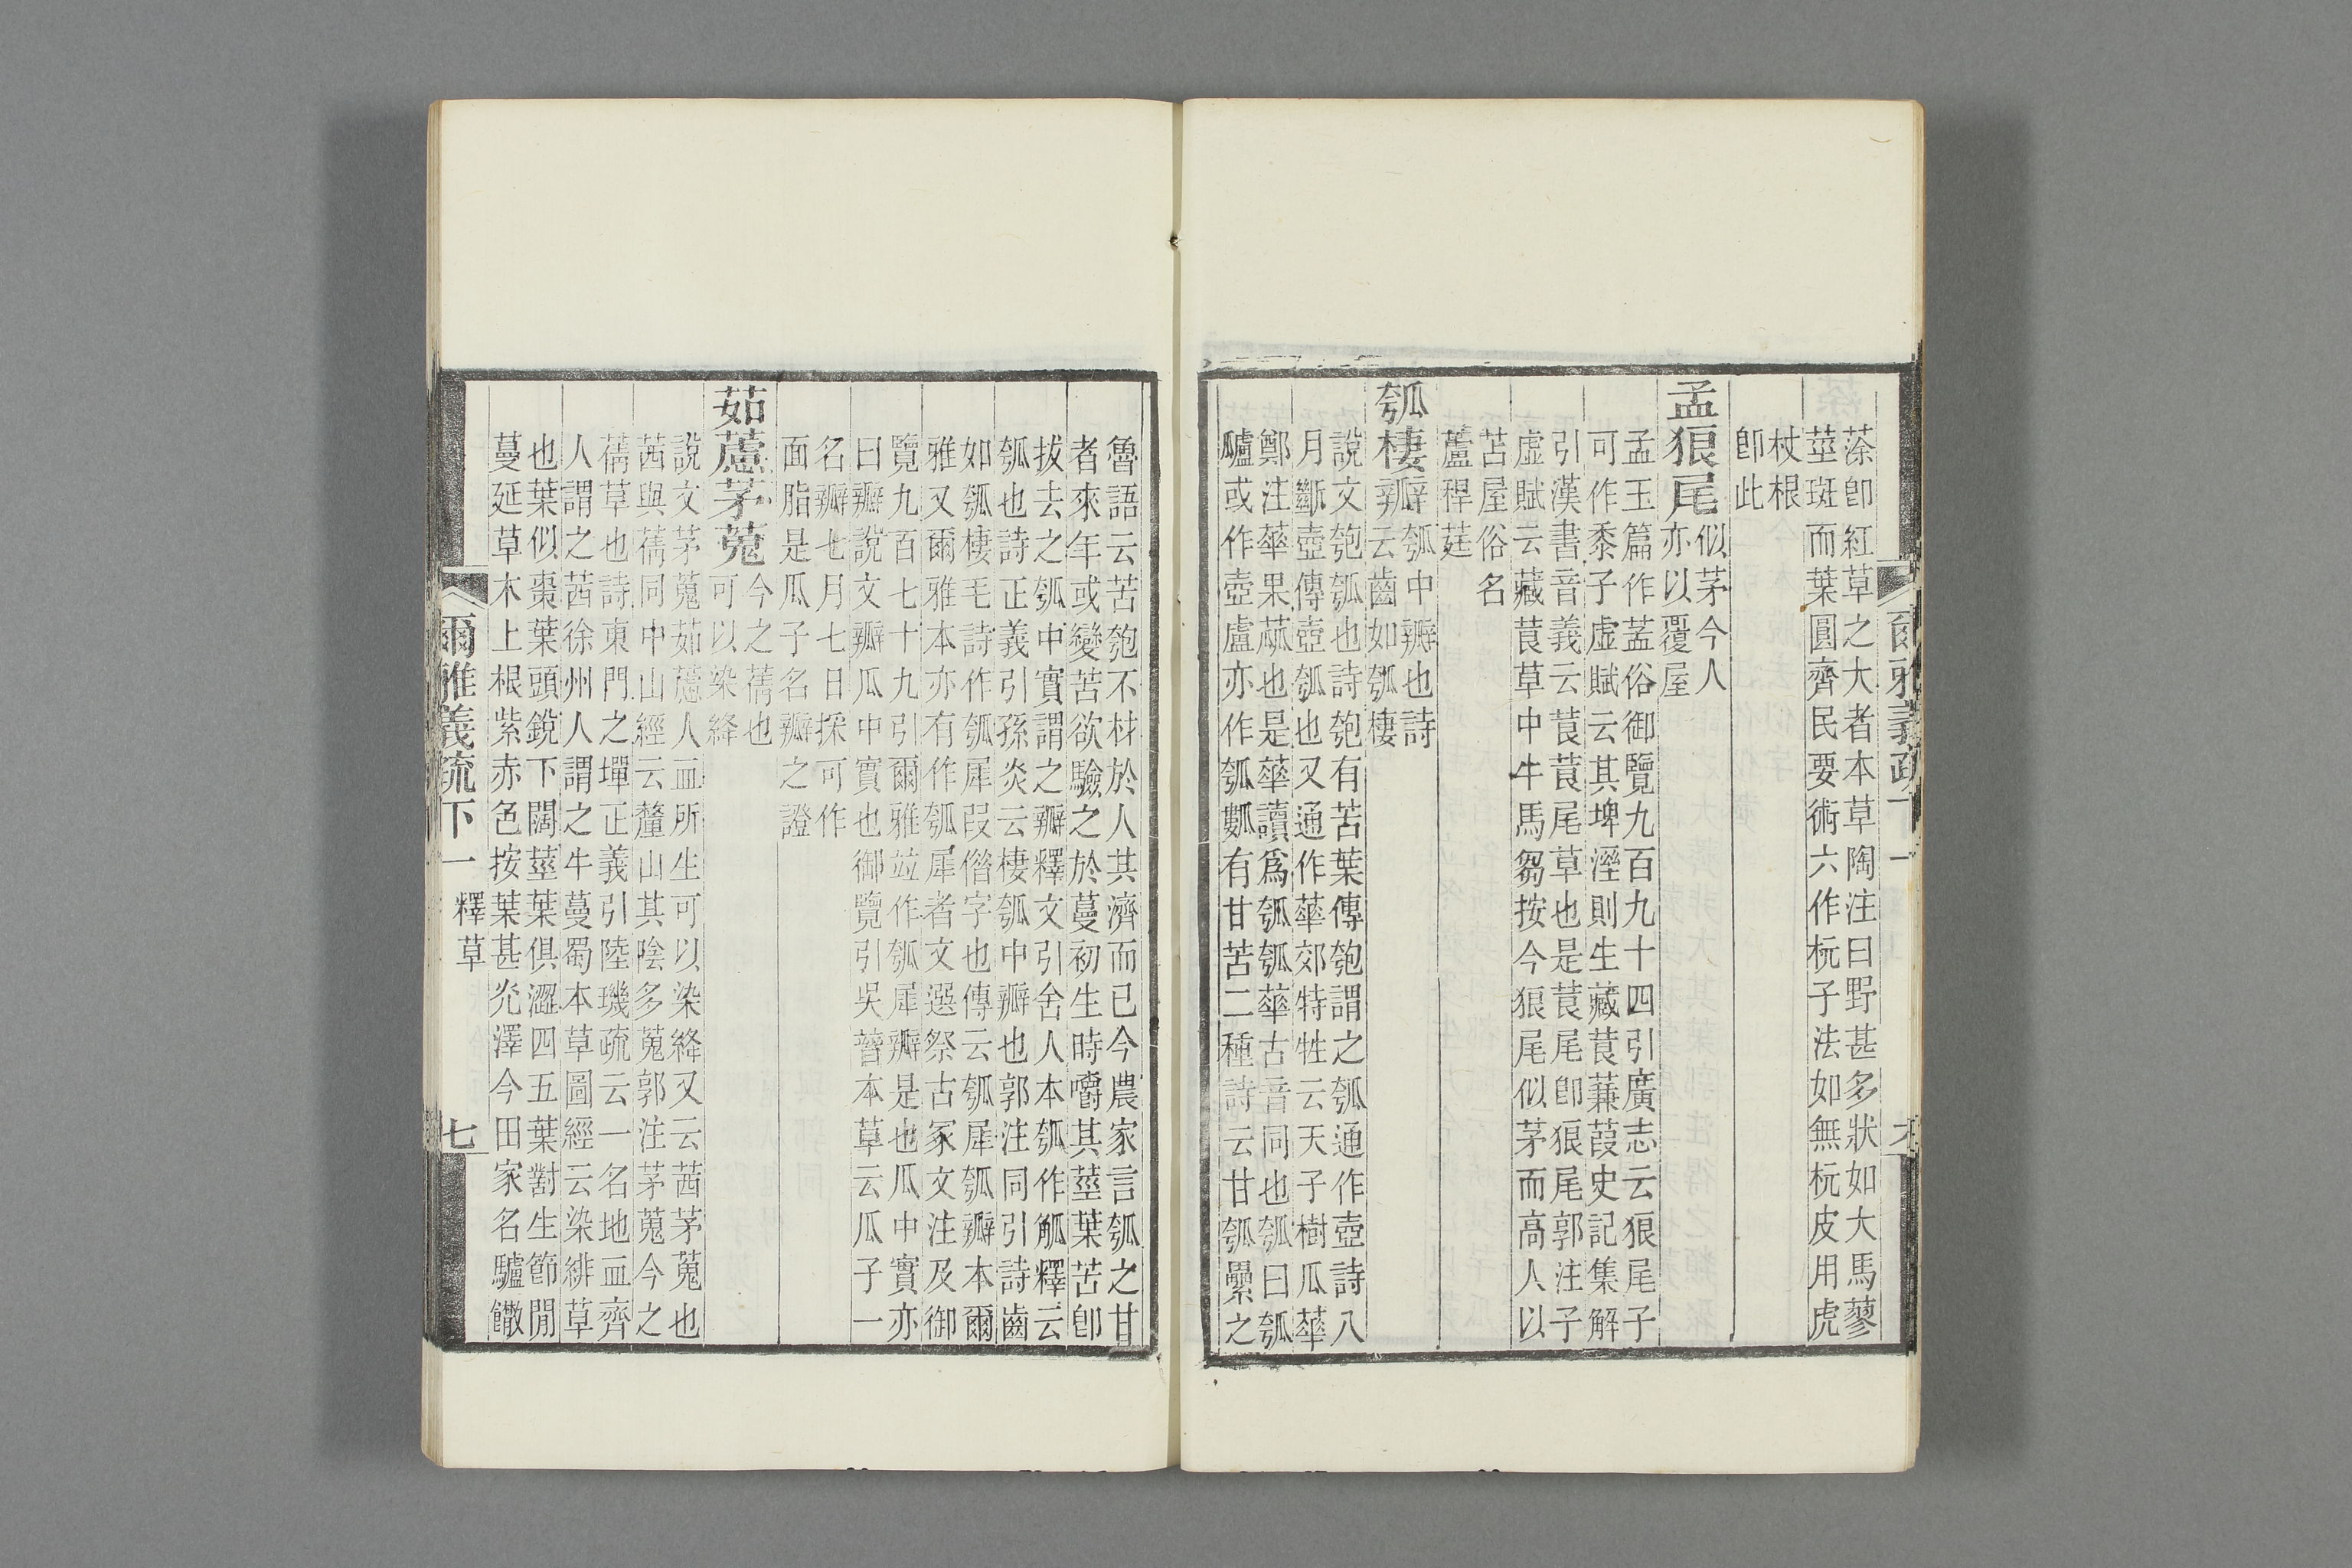 蒤即紅草之大者本草陶注曰野甚多狀如大馬蓼
莖斑而葉圓齊民要術六作杬子法如無杬皮用虎
杖根
即此
孟狼尾
似茅今人
亦以覆屋
孟玉篇作䓝俗御覽九百九十四引廣志云狼尾子
可作黍子虛賦云其埤溼則生藏莨蒹葭史記集解
引漢書音義云莨莨尾草也是莨尾即狼尾郭注子
虛賦云藏莨草中牛馬芻按今狼尾似茅而高人以
苫屋俗名
蘆稈莛
瓠棲瓣
瓠中瓣也詩
云齒如瓠棲
說文匏瓠也詩匏有苦葉傳匏謂之瓠通作壺詩八
月斷壺傳壺瓠也又通作華郊特牲云天子樹瓜華
鄭注華果蓏也是華讀爲瓠瓠華古音同也瓠曰瓠
𤬛或作壺盧亦作瓠㼖有甘苦二種詩云甘瓠纍之
魯語云苦匏不材於人共濟而已今農家言瓠之甘
者來年或變苦欲驗之於蔓初生時嚼其莖葉苦即
拔去之瓠中實謂之瓣釋文引舍人本瓠作觚釋云
瓠也詩正義引孫炎云棲瓠中瓣也郭注同引詩齒
如瓠棲毛詩作瓠犀叚偕字也傳云瓠犀瓠瓣本爾
雅又爾雅本亦有作瓠犀者文選祭古冢文注及御
覽九百七十九引爾雅竝作瓠犀瓣是也瓜中實亦
曰瓣說文瓣瓜中實也御覽引吳普本草云瓜子一
名瓣七月七日採可作
面脂是瓜子名瓣之證
茹藘茅蒐
今之蒨也
可以染絳
說文茅蒐茹藘人血所生可以染絳又云茜茅蒐也
茜與蒨同中山經云釐山其陰多蒐郭注茅蒐今之
蒨草也詩東門之墠正義引陸璣疏云一名地血齊
人謂之茜徐州人謂之牛蔓蜀本草圖經云染緋草
也葉似棗葉頭銳下闊莖葉俱澀四五葉對生節閒
蔓延草木上根紫赤色按葉甚光澤今田家名驢饊
爾雅義疏下一 釋草 七